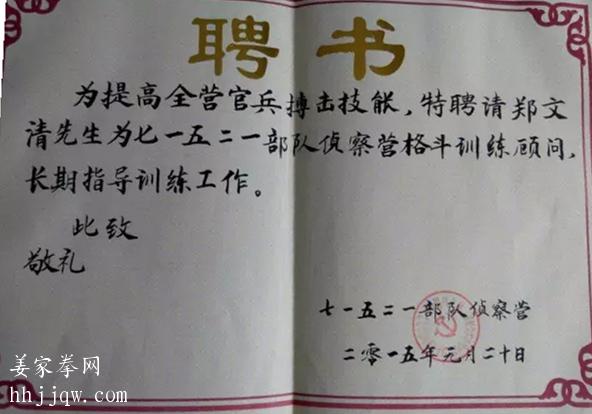 聘书
为提高全营官兵搏击技能，特聘请郑文
清先生为七一五二一部队侦察营格斗训练顾问，
长期指导训练工作。
此致
敬礼
七一五二一部队侦察营
二零一五年元月二十日
姜家拳网
hhjjqw.com